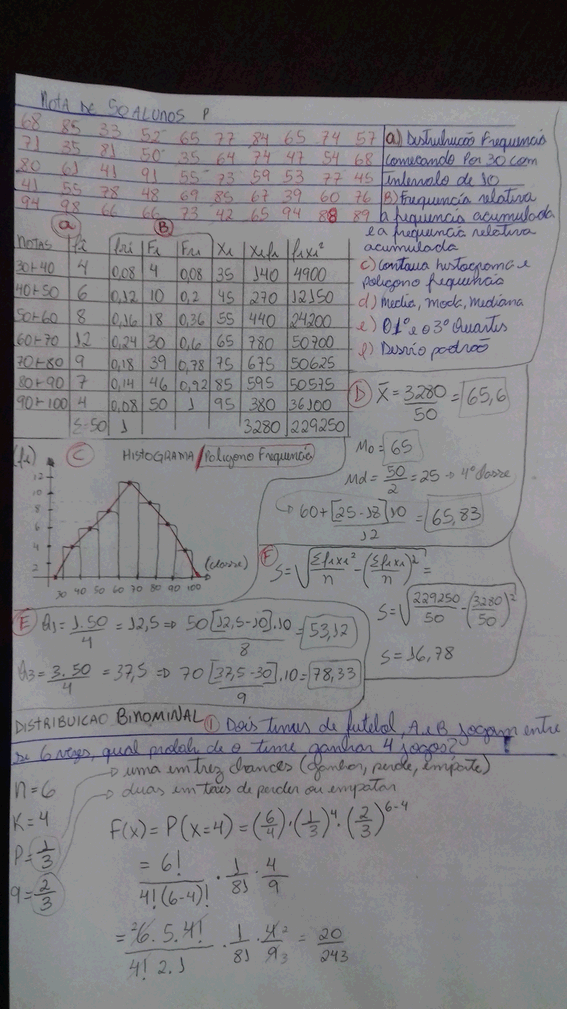 NOTA DE 50 ALUNOS P
68 85 33 52 65 77 84 65 74 57
71 35 81 50 35 64 74 47 54 68
80 61 41 91 55 73 59 53 77 45
41 55 78 48 69 85 67 39 60 76
94 98 66 66 73 42 65 94 88 89
a) Distribuição Frequencia
começando por 30 com
intervalo de 10
B) Frequencia relativa
a frequencia acumulada
e a frequencia relativa
acumulada
c) Contrua histograma e
poligono frequencia
d) Media, moda, mediana
e) O 1º e o 3º Quartis
f) Desvio padrão
a B
NOTAS fi fri Fi Fri Xi Xifi fixi²
30⊢40 4 0,08 4 0,08 35 140 4900
40⊢50 6 0,12 10 0,2 45 270 12150
50⊢60 8 0,16 18 0,36 55 440 24200
60⊢70 12 0,24 30 0,6 65 780 50700
70⊢80 9 0,18 39 0,78 75 675 50625
80⊢90 7 0,14 46 0,92 85 595 50575
90⊢100 4 0,08 50 1 95 380 36100
Σ=50 1 3280 229250
D X̄ = 3280/50 = 65,6
Mo = 65
Md = 50/2 = 25 → 4ª classe
↳ 60 + [25-18].10/12 = 65,83
C HISTOGRAMA / Poligono Frequencia
(fi)
12
10
8
6
4
2
30 40 50 60 70 80 90 100 (classe)
F S = √(Σfixi²/n - (Σfixi/n)²) =
S = √(229250/50 - (3280/50)²)
S = 16,78
E Q1 = 1.50/4 = 12,5 ⇒ 50 [12,5-10].10/8 = 53,12
Q3 = 3.50/4 = 37,5 ⇒ 70 [37,5-30].10/9 = 78,33
DISTRIBUICAO BINOMINAL 1 Dois times de futebol, A e B jogam entre
se 6 vezes, qual probab de o time ganhar 4 jogos?
→ uma em trez chances (ganhar, perde, empate)
→ duas em tres de perder ou empatar
n = 6
K = 4
P = 1/3
q = 2/3
F(x) = P(x=4) = (6/4) . (1/3)^4 . (2/3)^6-4
= 6!/4!(6-4)! . 1/81 . 4/9
= ²6.5.4!/4! 2.1 . 1/81 . 4²/9₃ = 20/243